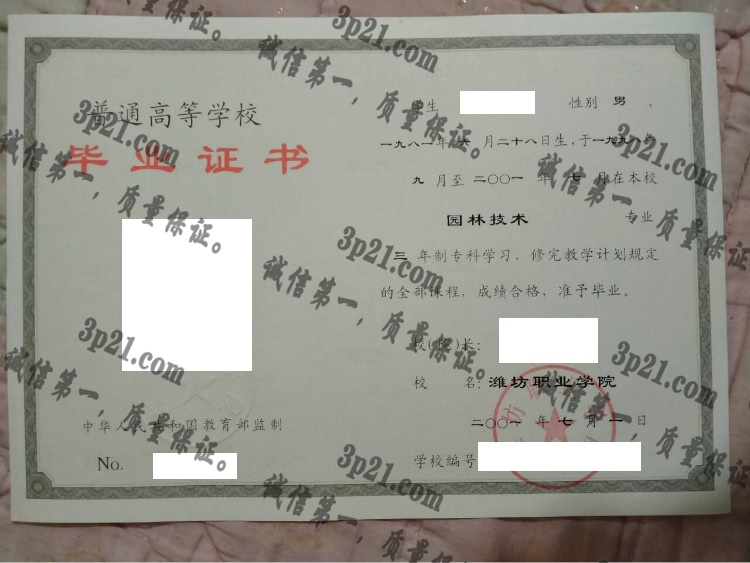 普通高等学校
毕业证书
中华人民共和国教育部监制
No.
学生 性别 男 ，
一九八一年六月二十八日生，于一九九八年
九 月至 二〇〇一 年 七 月在本校
园林技术 专业
三 年制专科学习，修完教学计划规定
的全部课程，成绩合格，准予毕业。
校(院)长：
校 名：潍坊职业学院
二〇〇一 年 七 月 一 日
学校编号
3p21.com
诚信第一，质量保证。
3p21.com
诚信第一，质量保证。
3p21.com
诚信第一，质量保证。
3p21.com
诚信第一，质量保证。
3p21.com
诚信第一，质量保证。
3p21.com
诚信第一，质量保证。
3p21.com
诚信第一，质量保证。
3p21.com
诚信第一，质量保证。